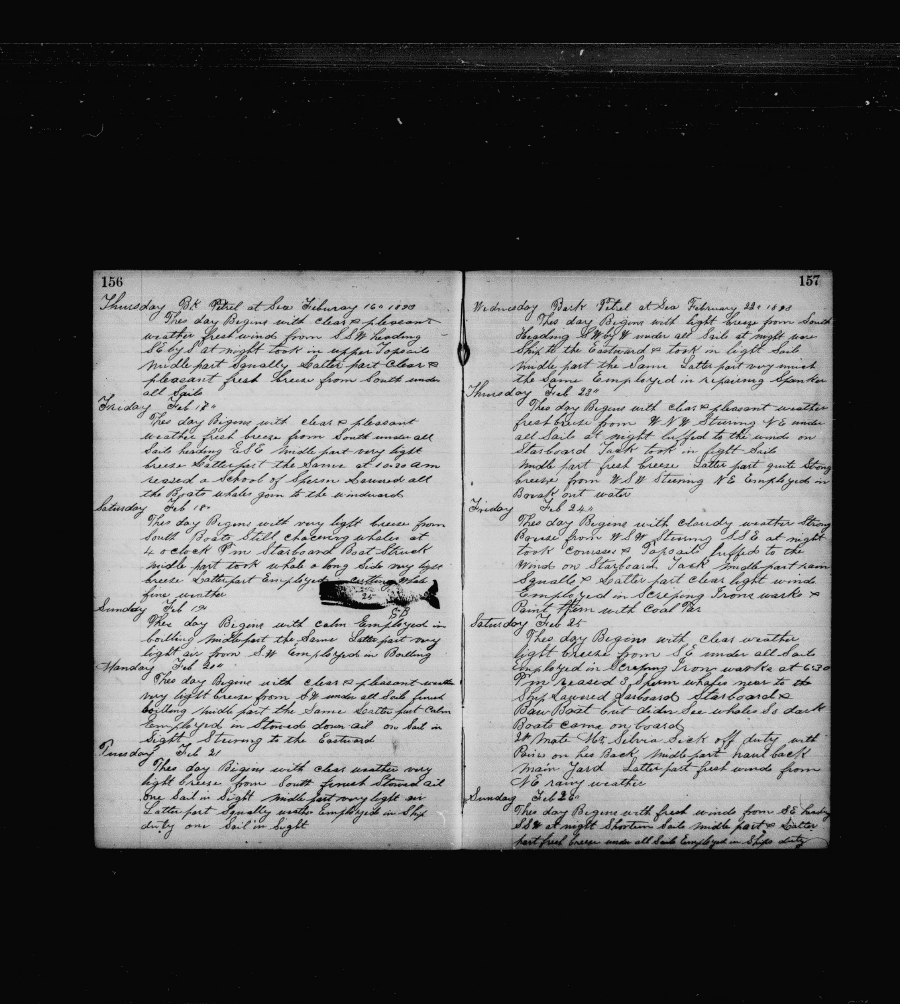 156
Thursday Bk Petrel at Sea Feburay 16" 1893
Thes day Begins with clear & pleasant
weather fresh wind from S.S.W heading
SE by S at night took in upper Topsails
midle part Squally Latter part Clear &
pleasant fresh breeze from South under
all Sails
Friday Feb 18"
Thes day Begins with clear & pleasant
weather fresh breeze from South under all
Sails heading E.S.E midle part very light
breeze Latter part the Same at 10.30 am
reased a School of Sperm Lawred all
the Boats whales goin to the windward
Saturday Feb 18"
Thes day Begins with very light breeze from
South Boats Still chaceing whales at
4 oclock Pm Starboard Boat Struck
midle part took whale a long Side very light
breeze Latter part Employed cutting
fine weather
25
SB
Sunday Feb 19"
Thes day Begins with Calm Employed in
boilling midle part the Same Latter part very
light air from S.W Employed in Boilling
Monday Feb 20"
Thes day Begins with clear & pleasant weather
very light breeze from SW under all Sails finish
boilling midle part the Same Latter part Calm
Employed in Stowed down oil on Sail in
Sight Steering to the Eastward
Tuesday Feb 21
Thes day Begins with clear weather very
light breeze from South finish Stowed oil
one Sail in Sight midle part very light air
Latter part Squally weather Employed in Ship
duty one Sail in Sight
157
Wednesday Bark Petrel at Sea February 22" 1893
Thes day Begins with light breeze from South
Heading SW by W under all Sails at night wore
Ship to the Eastward & took in light Sails
midle part the Same Latter part very much
the Same Employed in repairing Spanker
Thursday Feb 23"
Thes day Begins with clear & pleasant weather
fresh breeze from W.N.W Steering N.E under
all Sails at night luffed to the wind on
Starboard Tack took in light Sails
midle part fresh breeze Latter part quite Strong
breeze from W.S.W Steering N.E Employed in
Break out water
Friday Feb 24"
Thes day Begins with cloudy weather Strong
Breeze from W.S.W Steering S.S.E at night
took Courses & Topsails luffed to the
Wind on Starboard Tack midle part rain
Squalls & Latter part clear light wind
Employed in Screping Irons warks &
Paint them with Coal Tar
Saturday Feb 25
Thes day Begins with clear weather
light breeze from S.E under all Sails
Employed in Screping Iron warks at 6.30
Pm reased 3 Sperm whales near to the
Ship Lawred Larboard Starboard &
Baw Boat but diden See whales Is dark
Boats came on board
2d Mate Mr Silvia Sick off duty with
Pains on hes Back midle part haul back
Main Yard Latter part fresh winds from
N.E rainy weather
Sunday Feb 26"
Thes day Begins with fresh winds from S.E heading
S.S.W at night Shorten Sails midle part & Latter
part fresh breeze under all Sails Employed in Ships duty